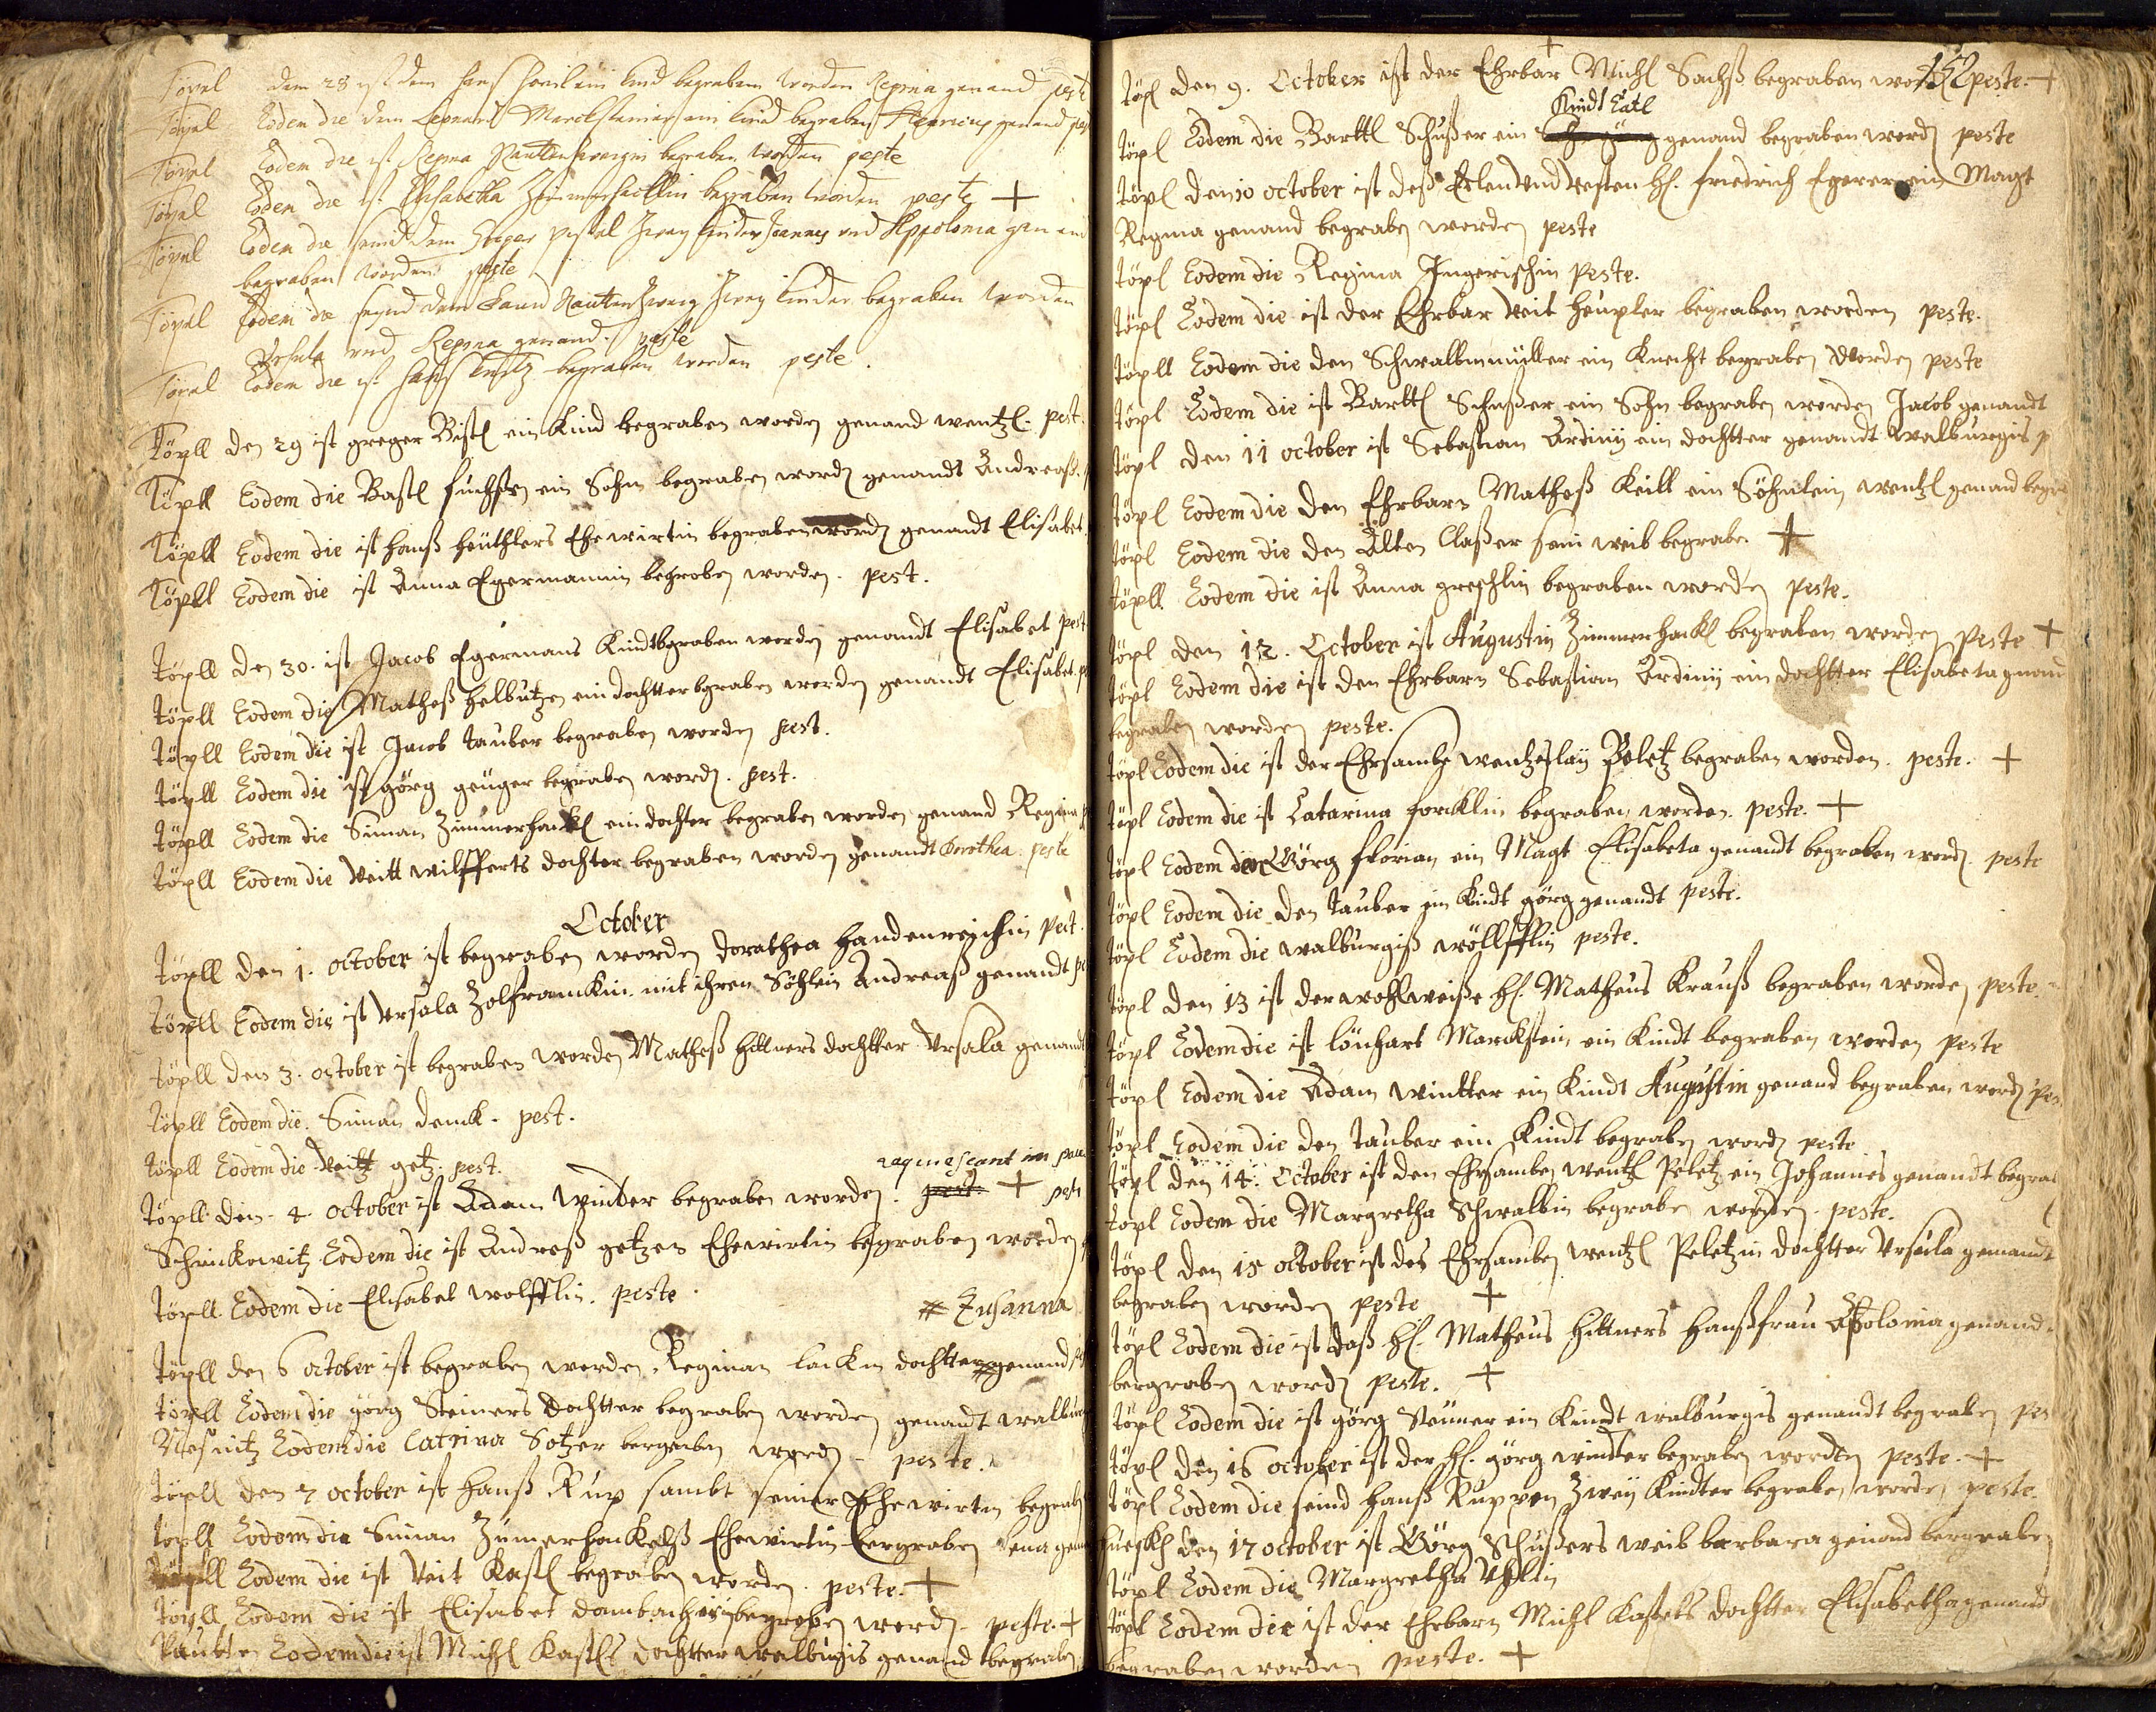 Töpel dem 28 ist dem Hanß ein kind begraben worden Regina genand peste
Töpel Eodem die dem Leonard Marckstainer ein kind begraben Henricus genand
Töpel Eodem die ist Regina Rauttenzweigin begraben worden peste
Töpel Eodem die ist Elisabetha Zimmerhacklin begraben worden peste +
Töpel Eodem die seind dem Greger Pistel zway kinder Joannes und Appolonia genand
begraben worden peste
Töpel Eodem die seynd dem Rauttenzweig zwey kinder begraben worden
Ursula vnd Regina genand. peste
Töpel Eodem die ist Hanß begraben worden peste.
Töpll den 29 ist greger Bistl ein Kind begraben worden genand wentzl. pest.
Töpll Eodem die Bastl fuchsen ein Sohn begraben word genandt Andreaß.
Töpll Eodem die ist Hanß Ehewirtin begraben word genandt Elisabet.
Töpll Eodem die ist Anna Egermannin begraben worden. pest.
Töpll den 30. ist Jacob Egermans Kindt bgraben worden genandt Elisabet pest
Töpll Eodem die Matheß helbutzen ein dochtter bgraben worden genandt Elisabet.
Töpll Eodem die ist Jacob tauber begraben worden pest.
töpll Eodem die ist görg geüger begraben word. pest.
töpll Eodem die Siman Zimmerhackl ein dochter begraben worden genand Regina
töpll Eodem die Veitt wilfferts dochter begraben worden genandt Dorothea. peste
October
töpll den 1. october ist begraben worden Dorathea Handenreichin pest.
töpll Eodem die ist Ursala Zolframckin. mit ihren Söhlein Andreaß genandt
töpll den 3. october ist begraben worden Matheß Hillners dochtter Ursala genandt
töpll Eodem die. Simon denck. pest.
töpll Eodem die Veitt getz. pest.
requiescant in pace
töpll den. 4 october ist Adam Winder begraben worden. pest. + peste
Schrikowitz Eodem die ist Andreß getzen Ehewirtin begraben worden
töpll Eodem die Elisabet wolfflin. peste.
# Zusanna
töpll den 6 october ist begraben worden Reginan lackin dochtter # genand
töpll Eodem die görg Steiners dochtter begraben worden genandt walburg
Nesnitz Eodem die Catrina Sotzer bergraben word. peste.
töpll den 7 october ist Hanß Rup sambt seiner Ehewirtin begraben
töpll Eodem die Siman Zimerhackelß Ehewirtin bergraben Lena
töpll Eodem die ist Veit Kastl begraben worden. peste. +
töpll Eodem die ist Elisabet dambacherin begraben word. peste. +
Eodem die ist Michl Kastls dochtter Walburgis genand begraben
töpl den 9. October ist der Ehrbar Michl Sachß begraben word 152 peste. +
Kindt Catl
töpl Eodem die Barttl Schußer ein genand begraben word peste
töpl den 10 october ist deß Edlen Vnd Vesten H. friedrich Egerer ein Magt
Regina genand begraben worden peste
töpl Eodem die Regina Ingerischin peste.
töpl Eodem die ist der Ehrbar Veit heupler begraben worden peste.
töpll Eodem die den Schwalbmmüller ein Knecht begraben worden peste
töpl Eodem die ist Barttl Schußer ein Sohn begraben worden Jacob genandt
töpl den 11 october ist Sebastian Ardinÿ ein dochtter genandt walburgis p
töpl Eodem die den Ehrbarn Matheß Keill ein Söhnlein wentzl genand begra
töpl Eodem die den Alten Claßer sein weib begrabe. +
töpll Eodem die ist Anna greschlin begraben worden peste.
töpl den 12. October ist Augustin Zimmerhackl begraben worden peste +
töpl Eodem die ist den Ehrbarn Sebastian Ardinÿ ein dochtter Elisabeta gnand
begraben worden peste.
töpl Eodem die ist der Ehrsambe wentzeslaÿ Peletz begraben worden. peste. +
töpl Eodem die ist Catarina forcklin begraben worden. peste. +
töpl Eodem die Görg florian ein Magt Elisabeta genandt begraben word. peste
töpl Eodem die den tauber ein Kindt görg genandt peste.
töpl Eodem die walburgiß wöllfflin peste.
töpl den 13 ist der wohlweiße H. Matheus Krauß begraben worden peste.
töpl Eodem die ist lönhart Marckstein ein Kindt begraben worden peste
töpl Eodem die Adam wintter ein Kindt Augustin genand begraben word pes
töpl Eodem die den tauber ein Kindt begraben word peste
töpl den 14. October ist den Ehrsamben wentzl Peletz ein Johannes genandt begra
töpl Eodem die Margretha Schwalbin begraben worden. peste.
töpl den 15 october ist des Ehrsamben wentzl Peletzin dochtter Ursula genandt
begraben worden peste +
töpl Eodem die ist daß H. Matheus Hittners Haußfrau Appolonia genand.
bergraben word peste. +
töpl Eodem die ist görg Steiner ein Kindt walburgis genandt begraben pes
töpl den 16 october ist der H. görg windter begraben worden peste. +
töpl Eodem die seind Hanß Ruppen Zweÿ Kindter begraben worden peste.
den 17 october ist Görg Schußers weib barbara genand bergraben
töpl Eodem die Margretha Uhlin
töpl Eodem die ist der Ehrbarn Michl Kastels dochtter Elisabetha genand
begraben worden peste. +